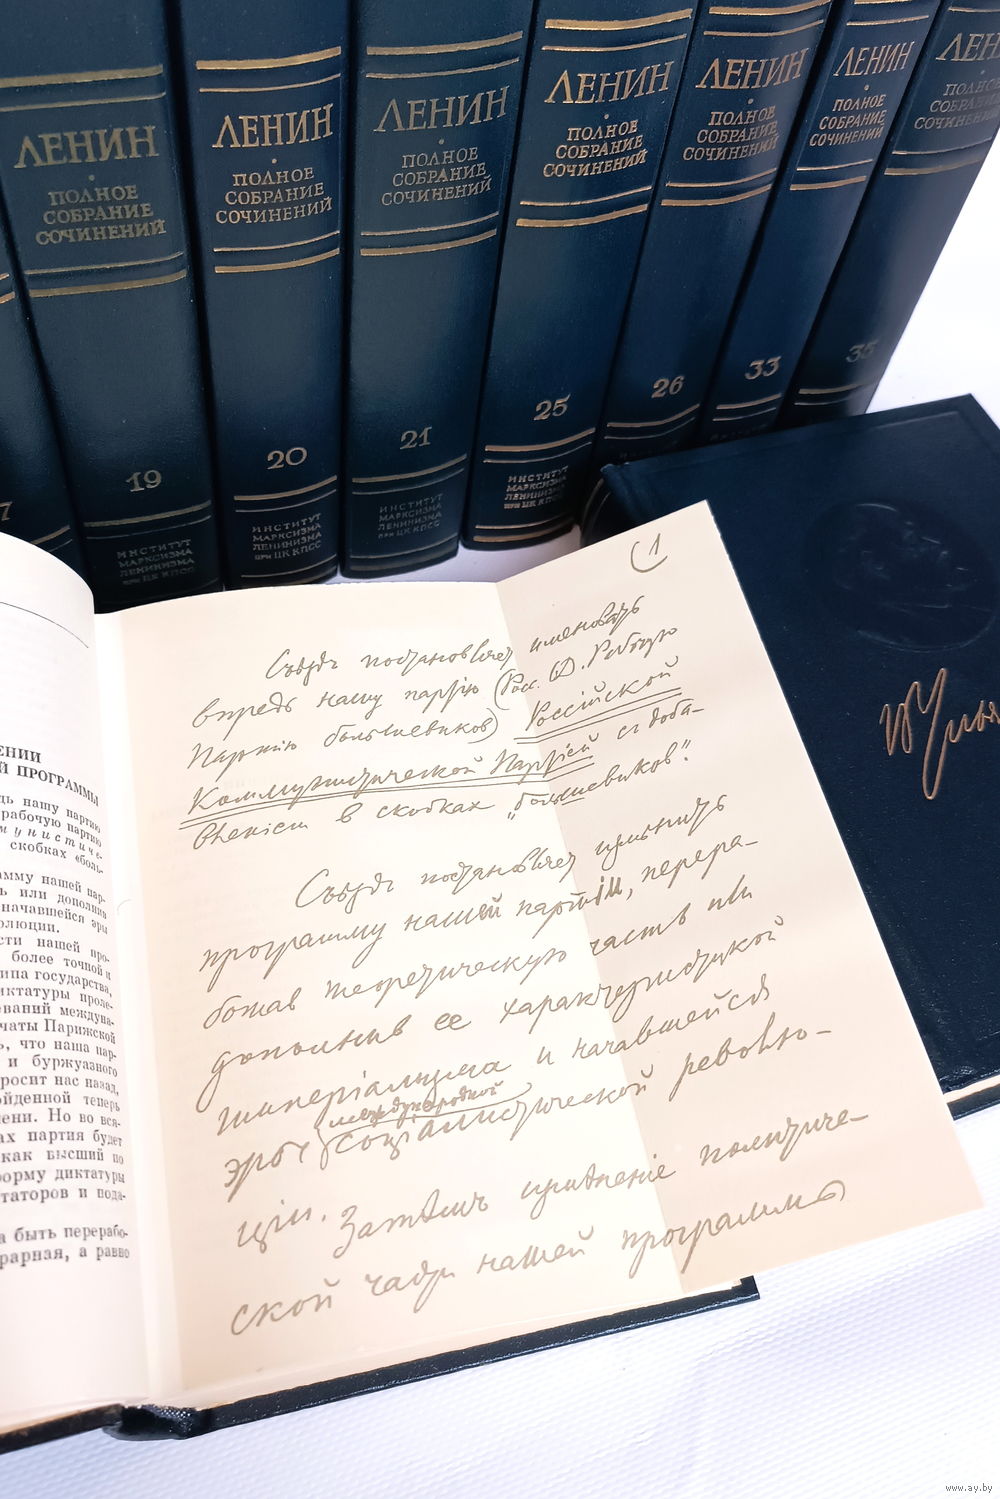 ЛЕНИН
ПОЛНОЕ
СОБРАНИЕ
СОЧИНЕНИЙ
19
ИНСТИТУТ
МАРКСИЗМА
ЛЕНИНИЗМА
ПРИ ЦК КПСС
ЛЕНИН
ПОЛНОЕ
СОБРАНИЕ
СОЧИНЕНИЙ
20
ИНСТИТУТ
МАРКСИЗМА
ЛЕНИНИЗМА
ПРИ ЦК КПСС
ЛЕНИН
ПОЛНОЕ
СОБРАНИЕ
СОЧИНЕНИЙ
21
ИНСТИТУТ
МАРКСИЗМА
ЛЕНИНИЗМА
ПРИ ЦК КПСС
ЛЕНИН
ПОЛНОЕ
СОБРАНИЕ
СОЧИНЕНИЙ
25
ИНСТИТУТ
МАРКСИЗМА
ЛЕНИНИЗМА
ПРИ ЦК КПСС
ЛЕНИН
ПОЛНОЕ
СОБРАНИЕ
СОЧИНЕНИЙ
26
ЛЕНИН
ПОЛНОЕ
СОБРАНИЕ
СОЧИНЕНИЙ
33
ЛЕНИН
ПОЛНОЕ
СОБРАНИЕ
СОЧИНЕНИЙ
35
7
ЕНИИ
Й ПРОГРАММЫ
дь нашу партию
рабочую партию
мунистиче-
скобках «боль-
амму нашей пар-
ь или дополнив
начавшейся эры
олюции.
сти нашей про-
более точной и
ипа государства,
иктатуры проле-
ований междуна-
чаты Парижской
ь, что наша пар-
и буржуазного
росит нас назад,
ойденной теперь
ени. Но во вся-
ах партия будет
как высший по
орму диктатуры
таторов и пода-
а быть перерабо-
рарная, а равно
(1
Съездъ постановляет именовать
впредь нашу партію (Росс. С.-Д. Рабочую
Партію большевиков) Россійской
Коммунистической Партіей съ доба-
вленіем в скобках „большевиков".
Съездъ постановляет изменить
программу нашей партіи, перера-
ботав теоретическую часть или
дополнив ее характеристикой
имперіализма и начавшейся
международной
эры социалистической револю-
ціи.
Затѣмъ измѣненіе политиче-
ской части нашей программы
В Улья
www.ay.by